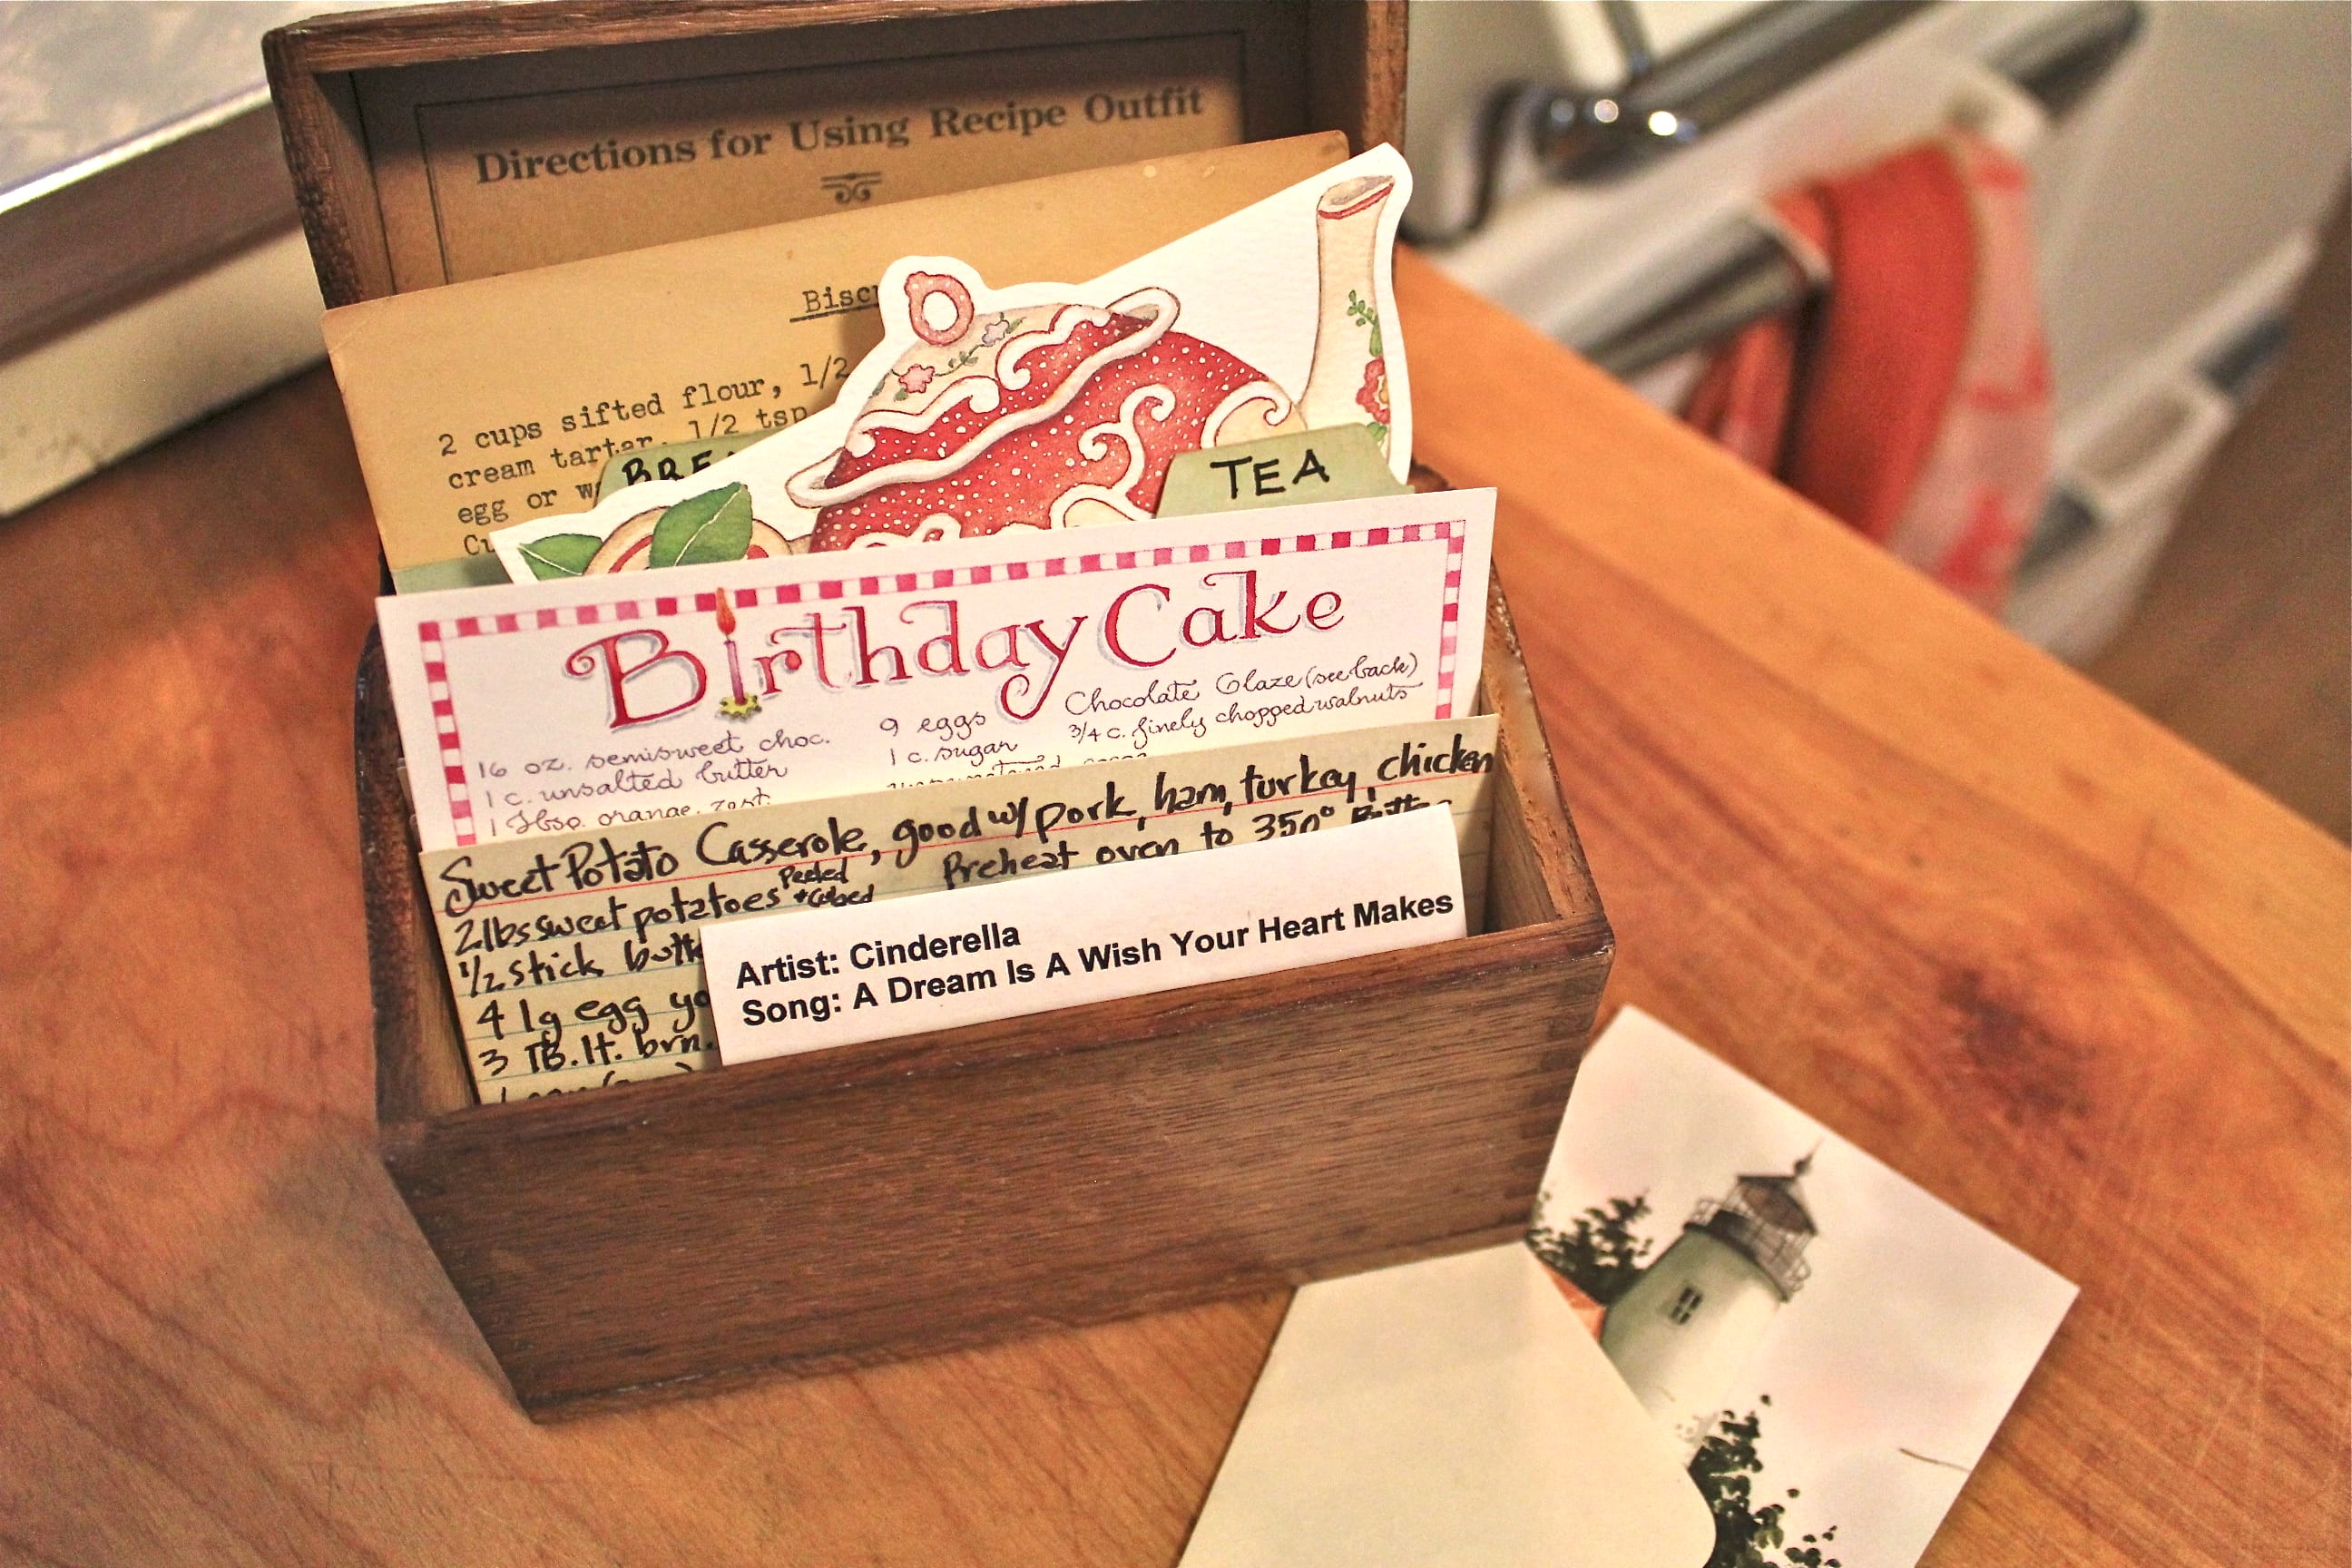 Directions for Using Recipe Outfit
Bisc
2 cups sifted flour, 1/2
cream tartar, 1/2 tsp
egg or
BRE
TEA
Birthday Cake
16 oz. semisweet choc.
1 c. unsalted butter
1 Tbsp. orange zest
9 eggs
1 c. sugar
Chocolate Glaze (see back)
3/4 c. finely chopped walnuts
Sweet Potato Casserole, good w/ pork, ham, turkey, chicken
2 lbs sweet potatoes Peeled + Cubed
1/2 stick butt
4 lg egg yo
3 TB. lt. brn.
Preheat oven to 350°
Artist: Cinderella
Song: A Dream Is A Wish Your Heart Makes